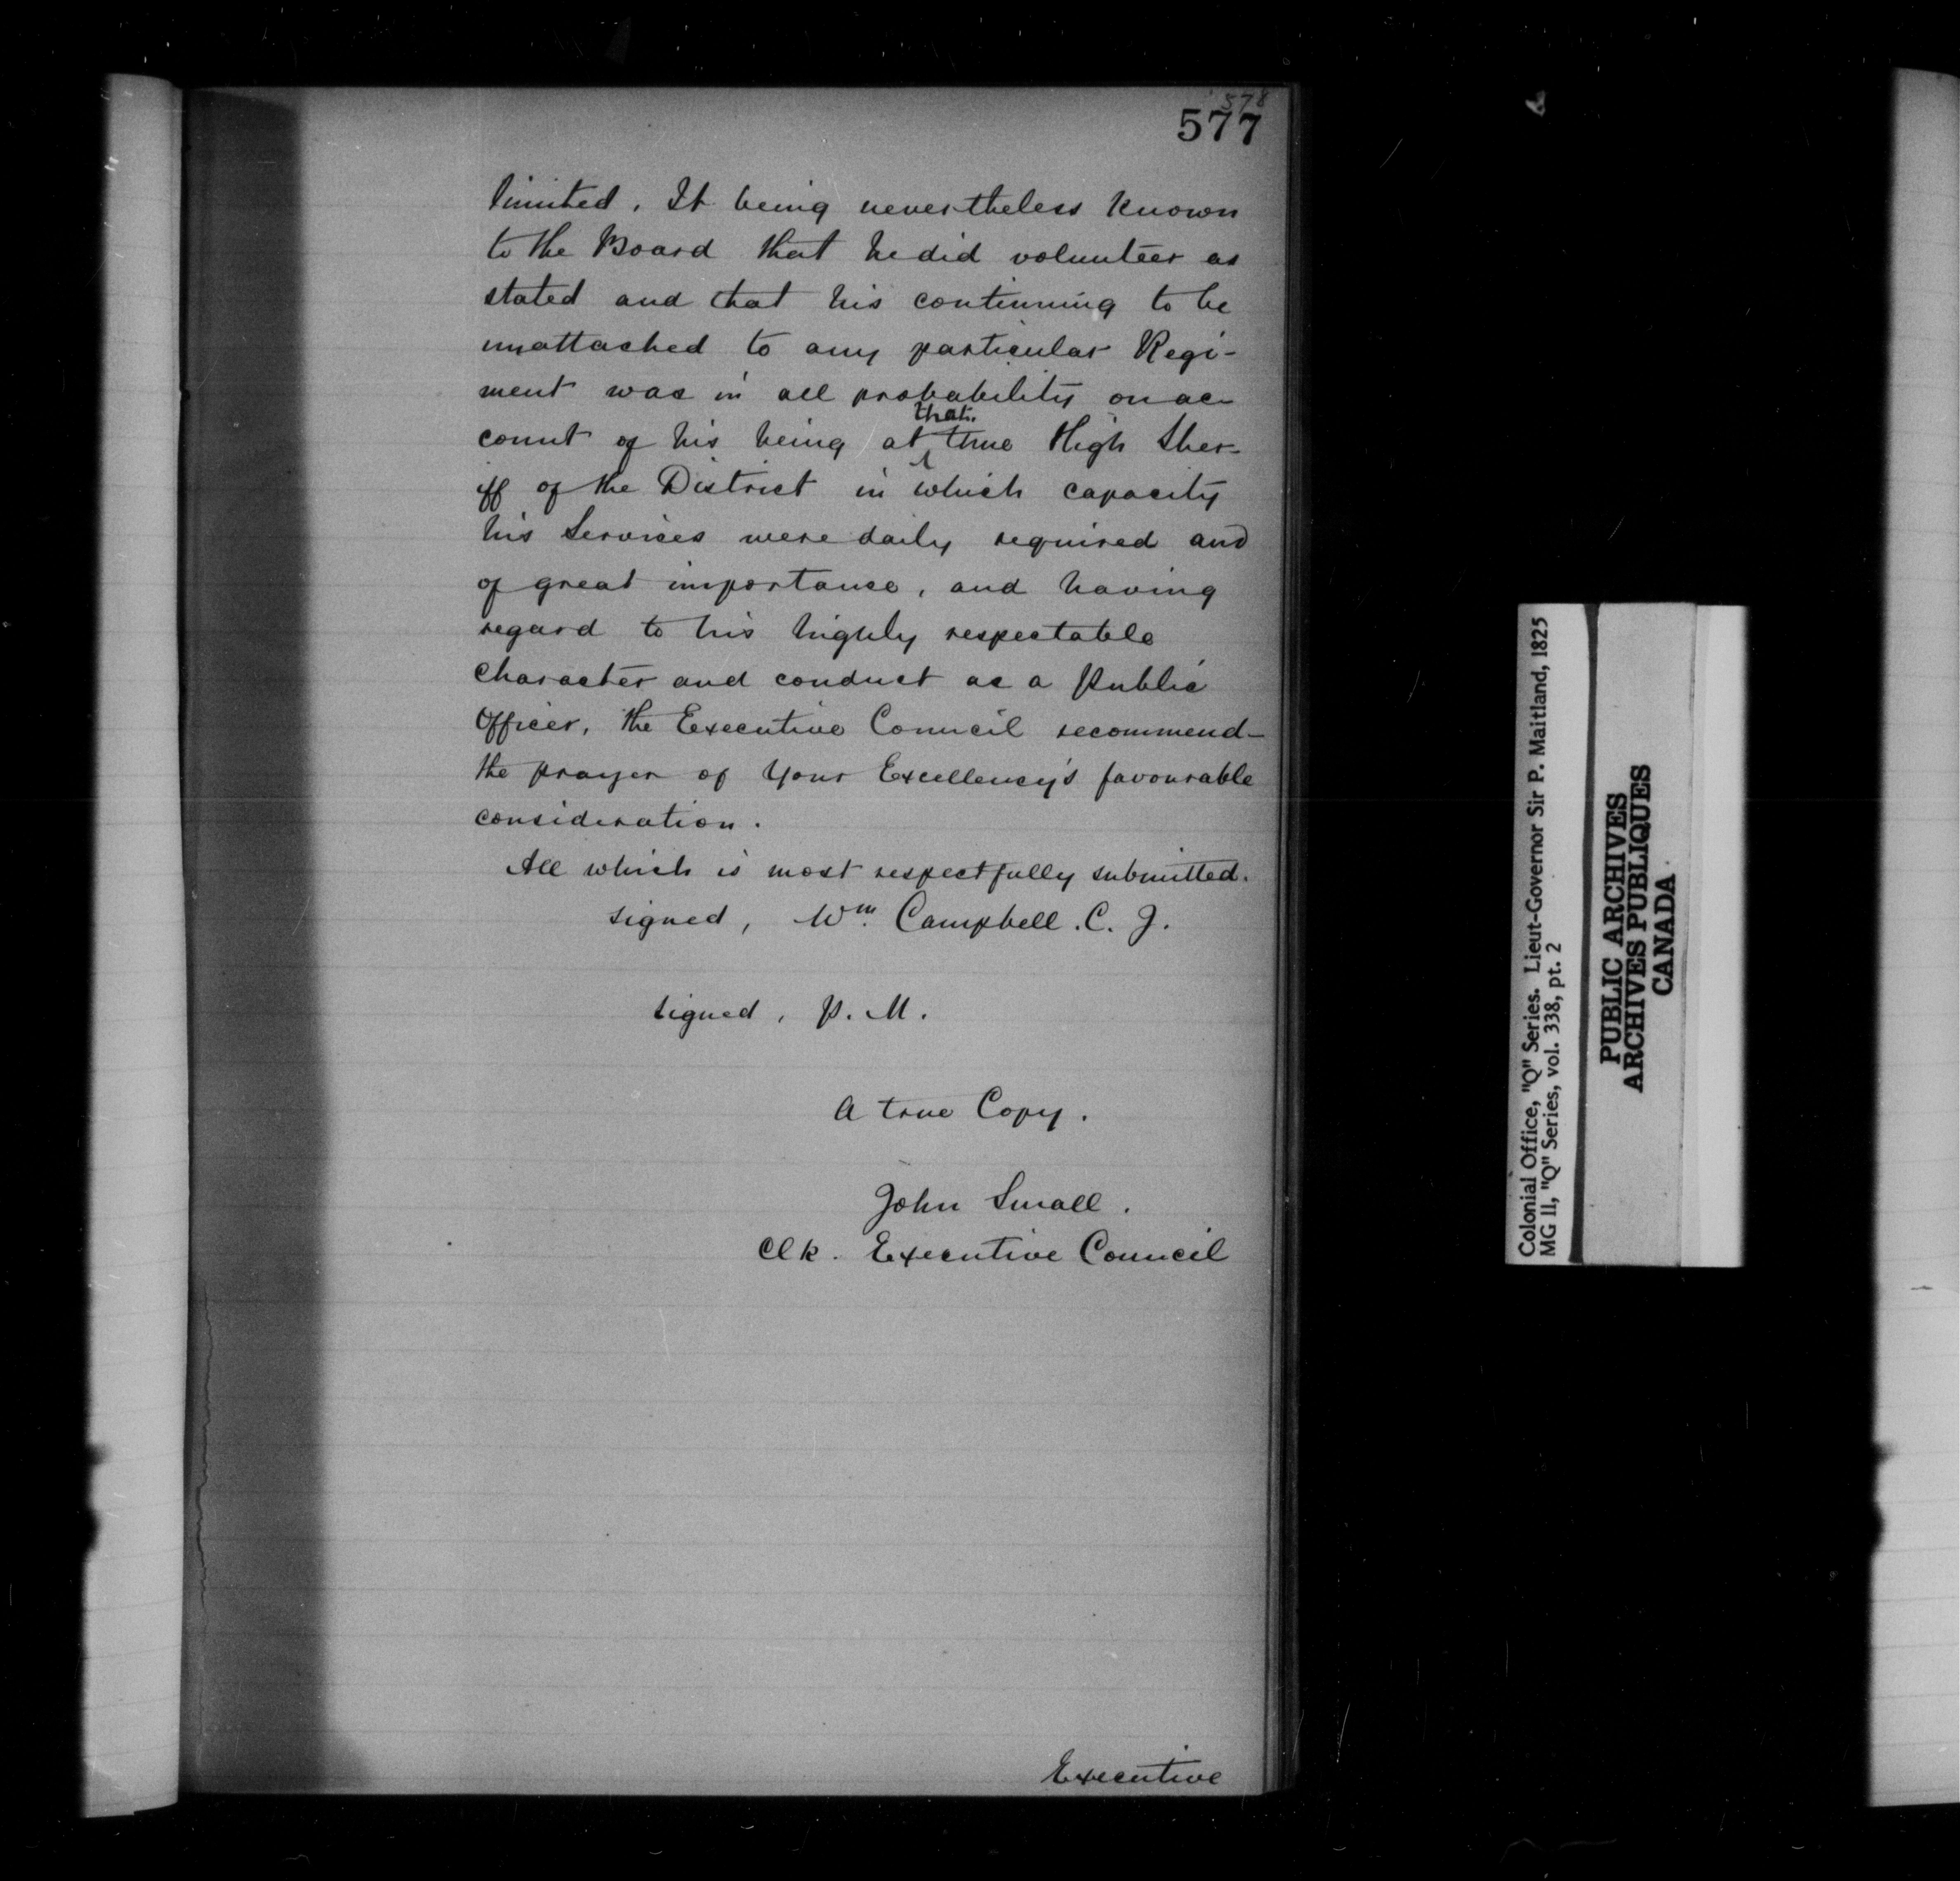 578
577
limited. It being nevertheless known
to the Board that he did volunteer as
stated and that his continuing to be
unattached to any particular Regi-
ment was in all probability on ac-
count of his being at that time High Sher-
iff of the District in which capacity
his Services were daily required and
of great importance, and having
regard to his highly respectable
character and conduct as a Public
Officer, the Executive Council recommend-
the prayer of Your Excellency's favourable
consideration.
All which is most respectfully submitted.
signed, Wm. Campbell. C. J.
signed, P. M.
A true Copy.
John Small.
Clk. Executive Council
Executive
Colonial Office, "Q" Series. Lieut-Governor Sir P. Maitland, 1825
MG 11, "Q" Series, vol. 338, pt. 2
PUBLIC ARCHIVES
ARCHIVES PUBLIQUES
CANADA